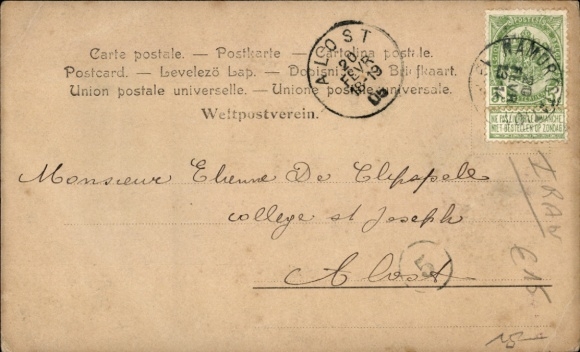 Carte postale. — Postkarte — Cartolina postale.
Postcard. — Levelező Lap. — Dopisnice — Briefkaart.
Union postale universelle. — Unione postale universale.
Weltpostverein.
ALOST
20
FEVR
12
05
NAMUR
NE PAS LIVRER LE DIMANCHE
NIET BESTELLEN OP ZONDAG
Monsieur Etienne De
college st Joseph
Alost
5
IRAN
€15
15